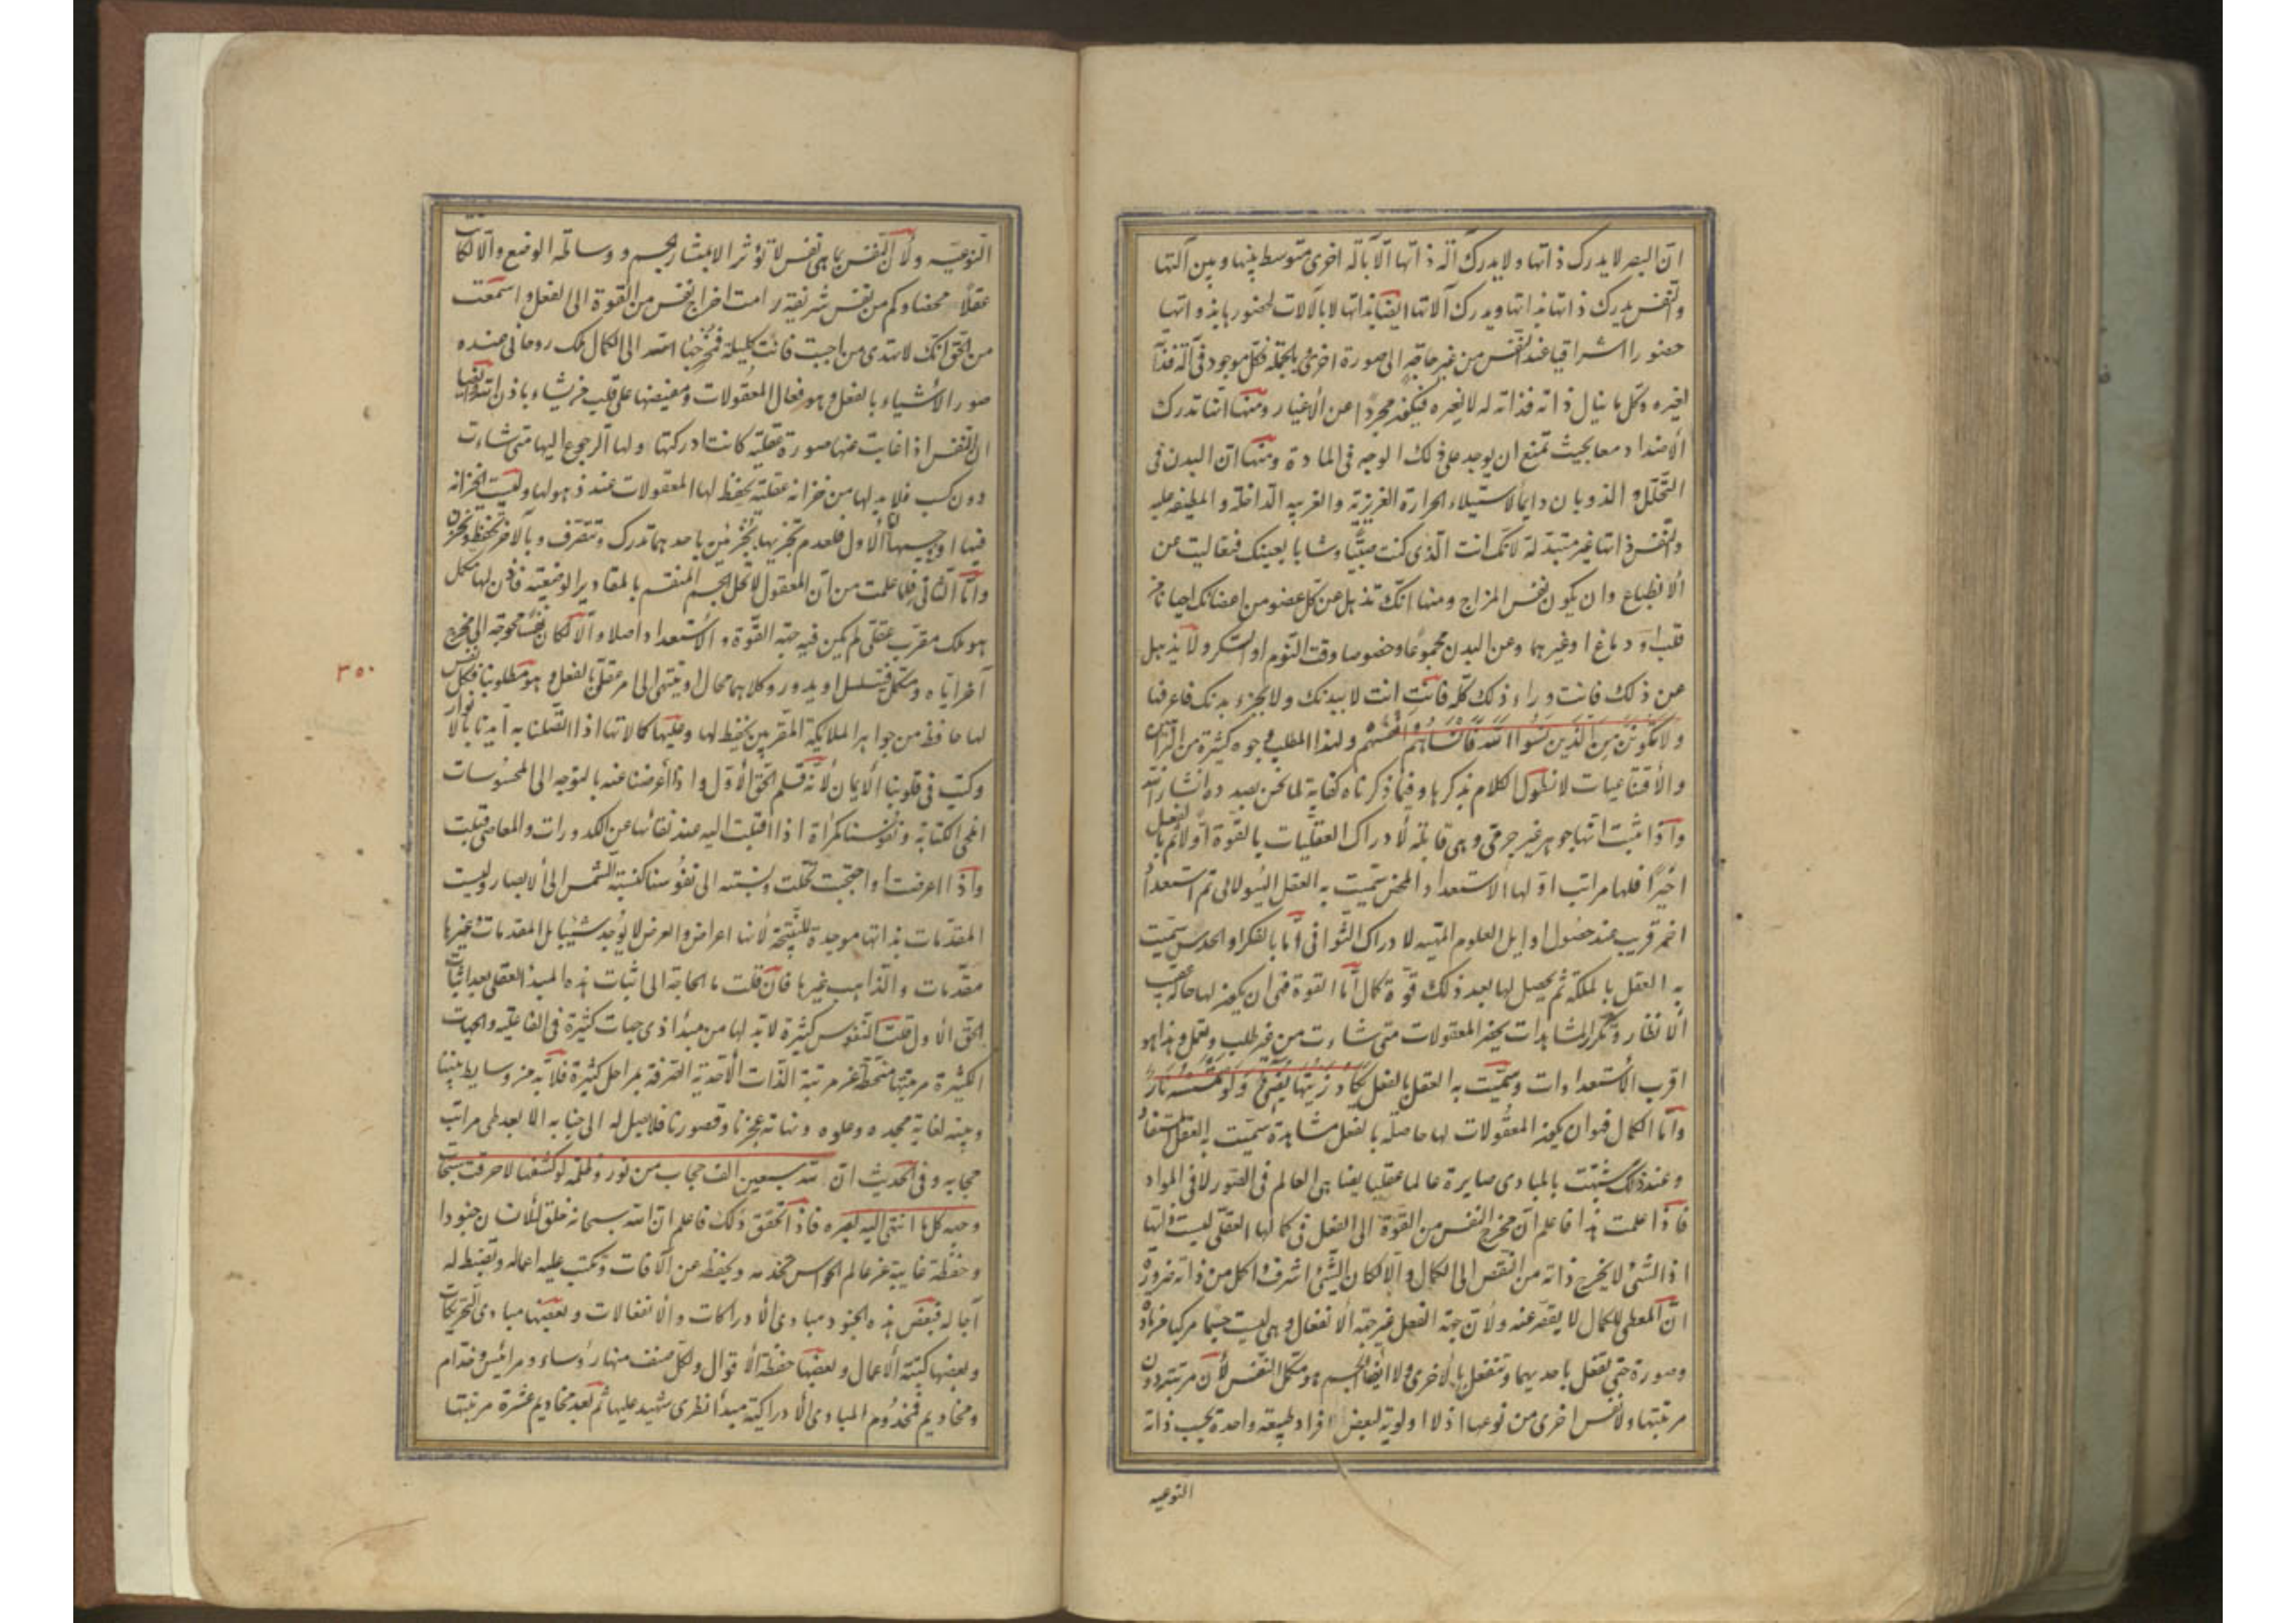 ان البصر لا يدرك ذاتها ولا يدرك آلة ذاتها الا بآلة اخرى متوسط بينها وبين آلتها
والنفس يدرك ذاتها بذاتها ويدرك آلاتها ايضا بذاتها لا بالآلات لحضورها بذواتها
حضورا اشراقيا عند النفس من غير حاجة الى صورة اخرى وبالجملة فكل موجود في آلة فذاته
لغيره وكل ما ينال ذاته فذاته له لا لغيره فيكون مجردا عن الأغيار ومنها انها تدرك
الأضداد معا بحيث تمنع ان يوجد على ذلك الوجه في المادة ومنها ان البدن في
التحلل والذوبان دايما لاستيلاء الحرارة الغريزية والغريبه الداخلة و المطيفة عليه
والنفس ذاتها غير متبدلة لانك انت الذى كنت صبيا وشابا بعينك فتعاليت عن
الأنطباع وان يكون نفس المزاج ومنها انك تذهل عن كل عضو من اعضائك احيانا من
قلب او دماغ او غيرهما وعن البدن مجموعا وخصوصا وقت النوم او السكر ولا يذهل
عن ذلك فانت وراء ذلك كله فانت انت لا ببدنك ولا بجزء بدنك فاعرفنا
ولا تكونن من الذين نسوا الله فانساهم انفسهم ولهذا المطلب وجوه كثيرة من
والأقناعيات لا نطول الكلام بذكرها وفيما ذكرناه كفاية لما نحن بصدده انشاء الله
واذا ثبت انها جوهر غير جرمى وهى قابلة لأدراك العقليات بالقوة اولا ثم بالفعل
اخيرا فلها مراتب اولها الاستعداد المحض سميت به العقل الهيولانى ثم استعداد
اخر قريب عند حصول اوايل العلوم المهيئه لادراك الثوانى اما بالفكر او الحدس سميت
به العقل بالملكة ثم يحصل لها بعد ذلك قوة كمال اما القوة فهى ان يكون لها حاكم عقيب
الانظار وتكرار المشاهدات يحضر المعقولات متى شاءت من غير طلب وتعمل وهذا هو
اقرب الأستعدادات وسميت به العقل بالفعل يكاد زيتها يضيء ولو لم تمسسه نار
واما الكمال فهو ان يكون المعقولات لها حاصلة بالفعل مشاهدة سميت به العقل المستفاد
وعند ذلك شبهت بالمبادى صايرة عالما عقليا يضاهى العالم فى الصور لا فى المواد
فاذا علمت هذا فاعلم ان مخرج النفس من القوة الى الفعل فى كمالها العقلى ليست ذاتها
اذ الشئ لا يخرج ذاته من النقص الى الكمال والا لكان الشئ اشرف واكمل من ذاته ضرورة
ان المعطى للكمال لا يقصر عنه ولأن جهة الفعل غير جهة الانفعال وهى ليست جسما مركبا من مادة
وصورة حتى تفعل باحديهما وتنفعل بالأخرى ولا ايضا الجسم هو مكمل النفس لأن مرتبته دون
مرتبتها ولا نفس اخرى من نوعها اذ لا اولوية لبعض افراد طبيعة واحدة بحسب ذاته
النوعيه
النوعيه ولأن النفس بما هى نفس لا تؤثر الا بمشاركة الجسم ووساطة الوضع والا لكانت
عقلا محضا وكم من نفس شريفة رامت اخراج نفس من القوة الى الفعل واسمعت
من الحق انك لا تهدى من احببت فانت كليلة فمخرجنا الى الكمال ملك روحانى عنده
صور الأشياء بالفعل وهو فعال المعقولات ومفيضها على قلب من يشاء باذن الله وايضا
ان النفس اذا غابت عنها صورة عقلية كانت ادركتها ولها الرجوع اليها متى شاءت
دون كسب فلا بد لها من خزانة عقلية يحفظ لها المعقولات عند ذهولها وليست الخزانة
فيها او جسمها أما الأول فلعدم تجزيها بجزئين باحدهما تدرك وتتصرف وبالآخر تحفظ وتخزن
واما الثانى فلما علمت من ان المعقول لا يحل الجسم المنقسم بالمقادير الوضعية فاذن لها مكمل
هو ملك مقرب عقلى لم يكن فيه جهة القوة والأستعداد اصلا والا لكان نفسا محوجة الى مخرج
آخر اياه ومكمل فيتسلسل او يدور وكلاهما محال او ينتهى الى امر عقلى بالفعل وهو مطلوبنا فكل نفس
لها حافظ من جواهر الملايكة المقربين يحفظ لها وعليها كمالاتها اذا اتصلنا به ايدنا بالانوار
وكتب فى قلوبنا الأيمان لأنه قلم الحق الأول واذا أعرضنا عنه بالتوجه الى المحسوسات
انمحى الكتابة ونفوسنا كمرآة اذا اقبلت اليه عند نقائها عن الكدورات والمعاصى قبلت
واذا اعرضت او احتجبت تخلت ونسبته الى نفوسنا كنسبة الشمس الى الأبصار وليست
المقدمات بذاتها موجدة للنتيجة لأنها اعراض والعرض لا يوجد شيئا بل المقدمات وغيرها
مقدمات والذاهب غيرها فان قلت ما الحاجة الى اثبات هذه المبدء العقلى بعد اثبات
الحق الأول قلت النفوس كثيرة لا بد لها من مبدأ ذى جهات كثيرة فى الفاعلية والجهات
الكثيرة مرتبتها منحطة عن مرتبة الذات الأحدية الصرفة بمراحل كثيرة فلا بد من وسايط بيننا
وبينه لغاية مجده وعلوه ونهاية عجزنا وقصورنا فلا يصل له الى جنابه الا بعد طى مراتب
حجابه وفى الحديث ان لله سبعين الف حجاب من نور وظلمة لو كشفها لاحرقت سبحات
وجهه كل ما انتهى اليه بصره فاذا تحقق ذلك فاعلم ان الله سبحانه خلق للأنسان جنودا
وحفظة غايبة عن عالم الحواس تخدمه ويحفظه عن الآفات وتكتب عليه اعماله وتضبط له
آجاله فبعض هذه الجنود مبادى الأدراكات والانفعالات وبعضها مبادى التحريكات
وبعضها كتبة الأعمال وبعضها حفظة الأقوال ولكل صنف منها رؤساء ومرائيس وخدام
ومخاديم فمخدوم المبادى الأدراكية مبدأ نظرى شهيد عليها ثم بعد مخاديم عشرة مرتبتها
٣٥٠